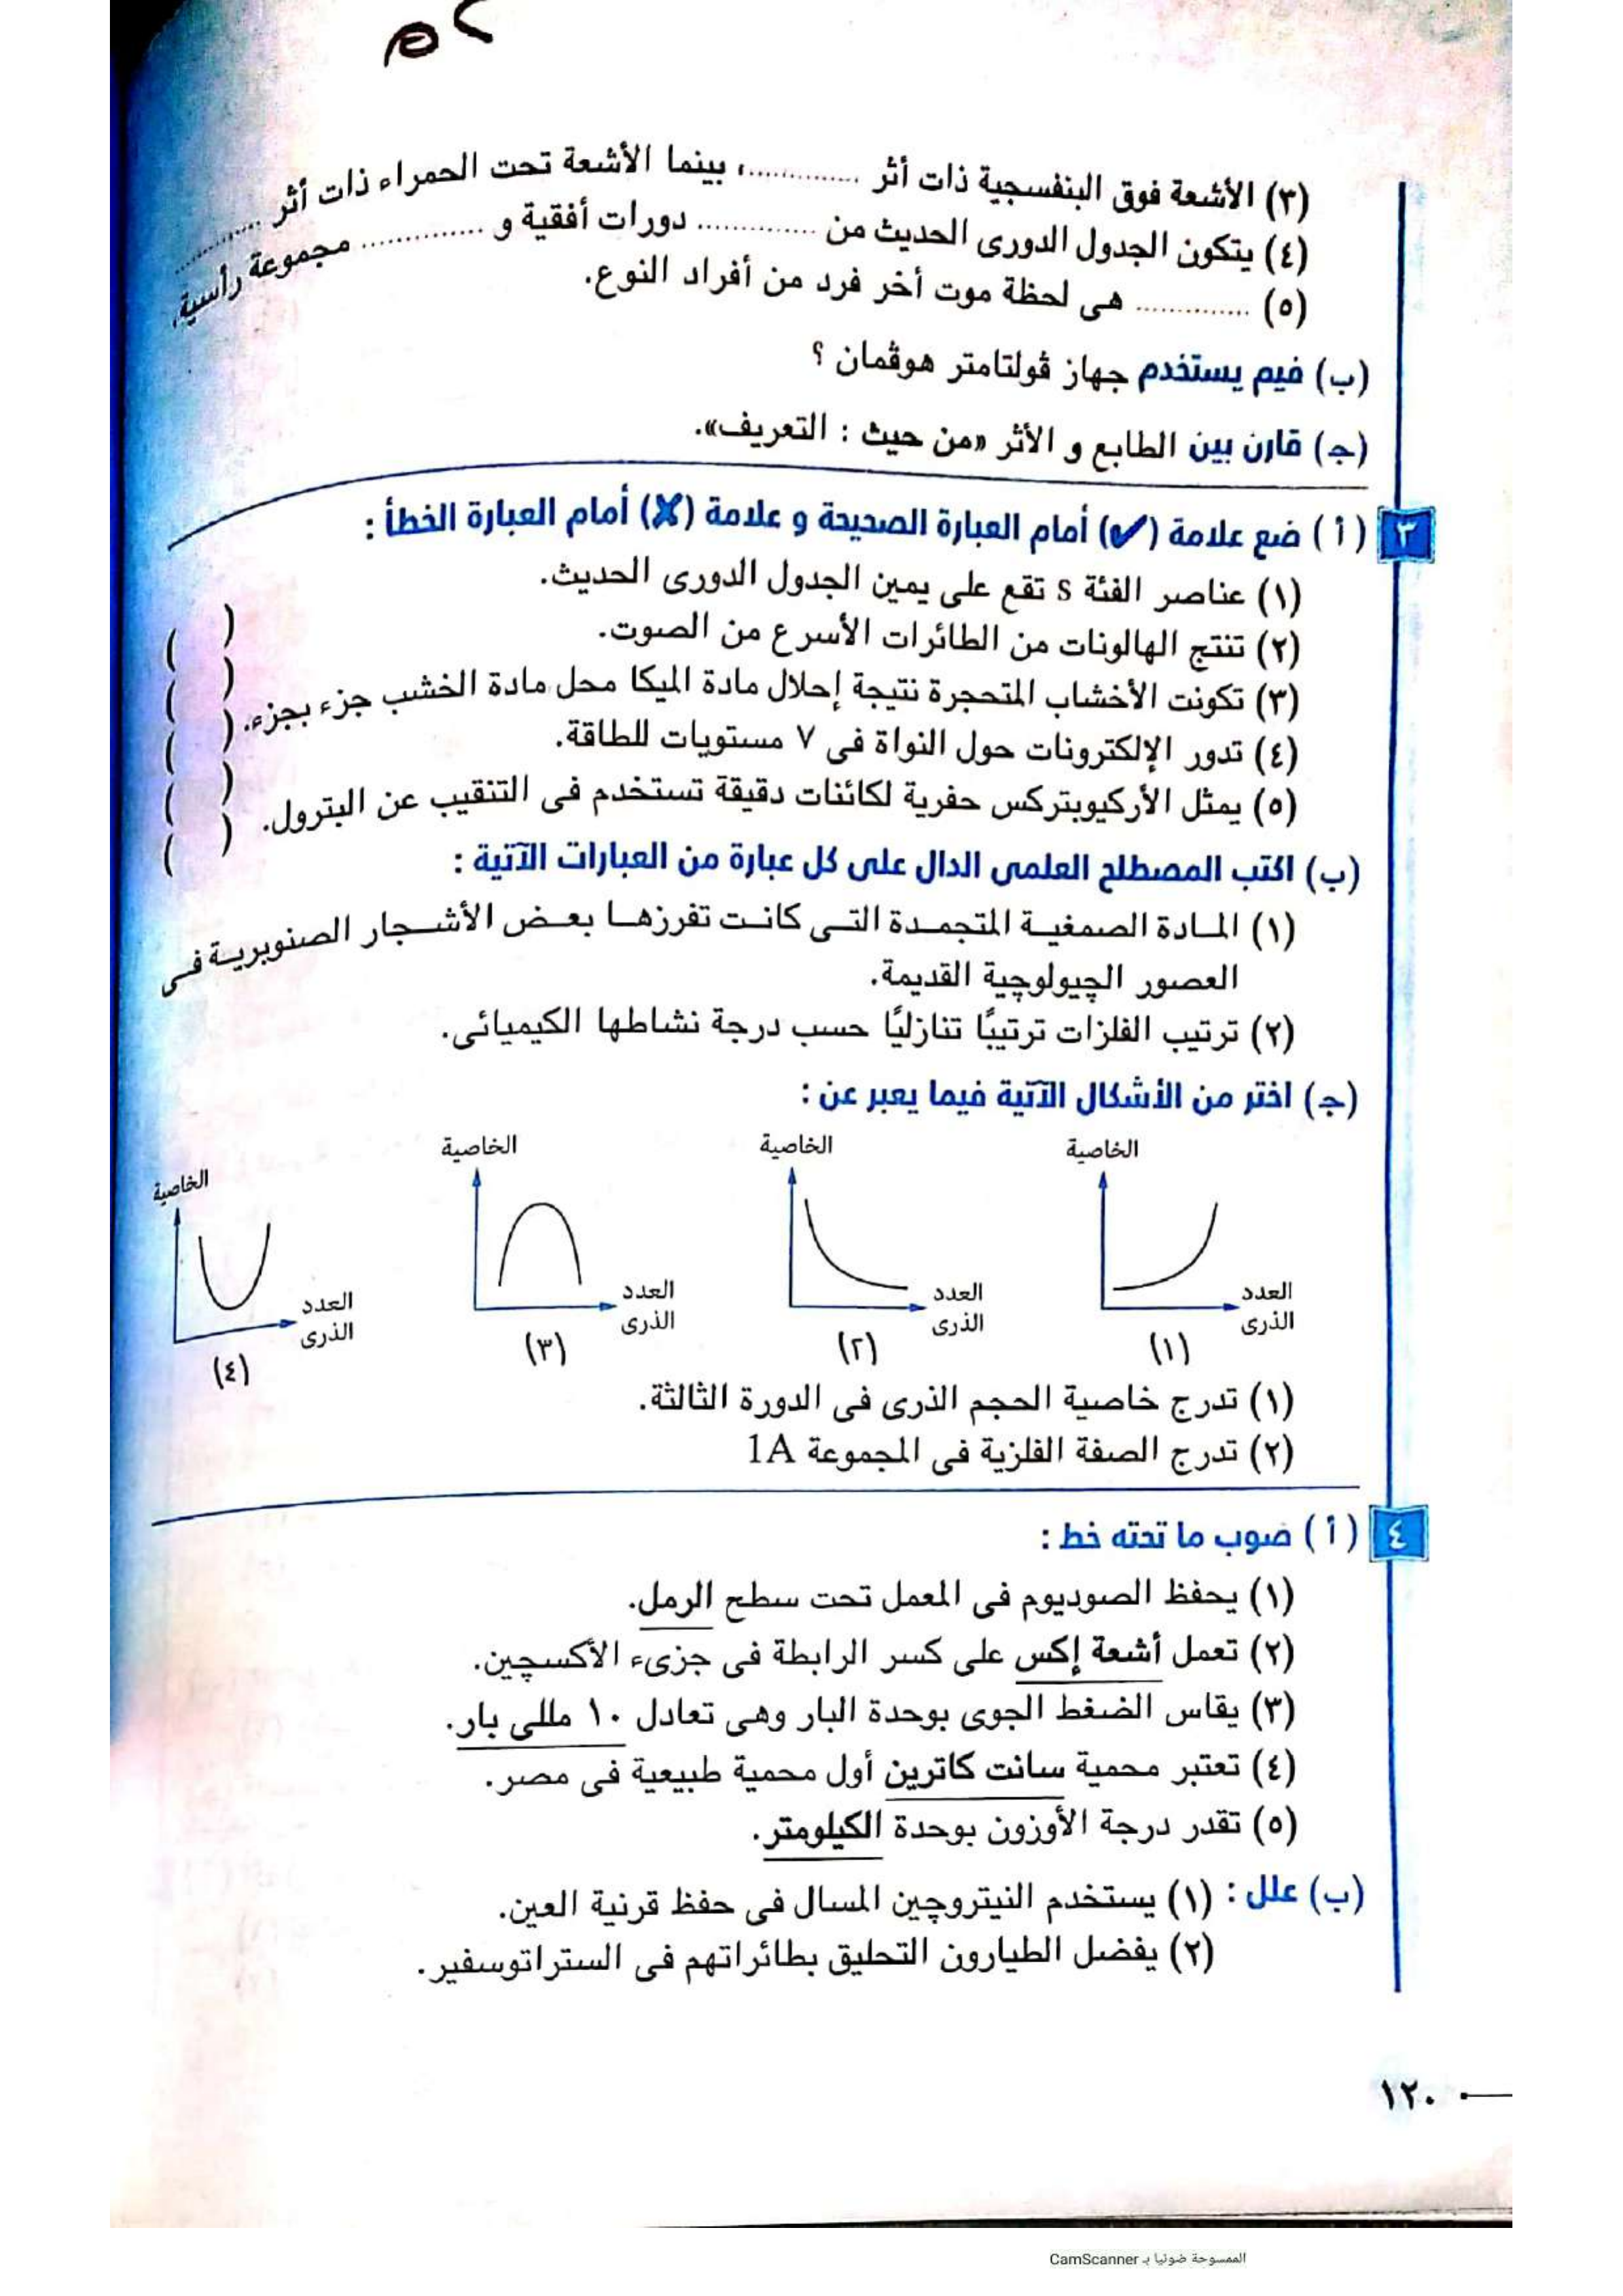 م٢
(٣) الأشعة فوق البنفسجية ذات أثر ..............، بينما الأشعة تحت الحمراء ذات أثر ..............
(٤) يتكون الجدول الدورى الحديث من .............. دورات أفقية و .............. مجموعة رأسية.
(٥) .............. هى لحظة موت أخر فرد من أفراد النوع.
(ب) فيم يستخدم جهاز ڤولتامتر هوڤمان ؟
(جـ) قارن بين الطابع و الأثر «من حيث : التعريف».
٣ ( أ ) ضع علامة (✔) أمام العبارة الصحيحة و علامة (✘) أمام العبارة الخطأ :
(١) عناصر الفئة s تقع على يمين الجدول الدورى الحديث. ( )
(٢) تنتج الهالونات من الطائرات الأسرع من الصوت. ( )
(٣) تكونت الأخشاب المتحجرة نتيجة إحلال مادة الميكا محل مادة الخشب جزء بجزء. ( )
(٤) تدور الإلكترونات حول النواة فى ٧ مستويات للطاقة. ( )
(٥) يمثل الأركيوبتركس حفرية لكائنات دقيقة تستخدم فى التنقيب عن البترول. ( )
(ب) اكتب المصطلح العلمى الدال على كل عبارة من العبارات الآتية :
(١) المادة الصمغية المتجمدة التى كانت تفرزها بعض الأشجار الصنوبرية فى
العصور الچيولوچية القديمة.
(٢) ترتيب الفلزات ترتيبًا تنازليًا حسب درجة نشاطها الكيميائى.
(جـ) اختر من الأشكال الآتية فيما يعبر عن :
الخاصية الخاصية الخاصية الخاصية
العدد العدد العدد العدد
الذرى الذرى الذرى الذرى
(١) (٢) (٣) (٤)
(١) تدرج خاصية الحجم الذرى فى الدورة الثالثة.
(٢) تدرج الصفة الفلزية فى المجموعة 1A
٤ ( أ ) صوب ما تحته خط :
(١) يحفظ الصوديوم فى المعمل تحت سطح الرمل.
(٢) تعمل أشعة إكس على كسر الرابطة فى جزىء الأكسچين.
(٣) يقاس الضغط الجوى بوحدة البار وهى تعادل ١٠ مللى بار.
(٤) تعتبر محمية سانت كاترين أول محمية طبيعية فى مصر.
(٥) تقدر درجة الأوزون بوحدة الكيلومتر.
(ب) علل : (١) يستخدم النيتروچين المسال فى حفظ قرنية العين.
(٢) يفضل الطيارون التحليق بطائراتهم فى الستراتوسفير.
١٢٠
الممسوحة ضوئيا بـ CamScanner